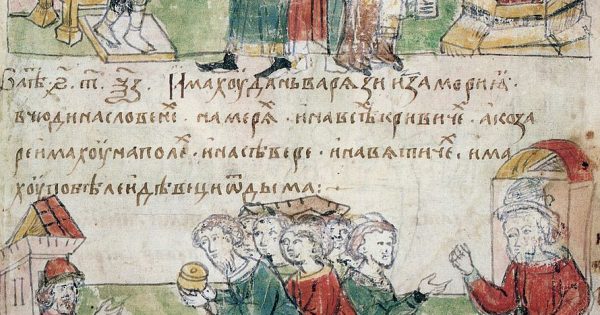 В лѣⷮ ҂ѕ҃ т҃ ѯ҃з҃ имахоу дань варѧзи изаморꙗ ·
вчюди насловене · намерѧ · инавсѣ кривиче · акоза
реимахоу наполе · инасѣвере · инавѧтиче · има
хоу побѣлеи дѣвеци ѿ дыма :